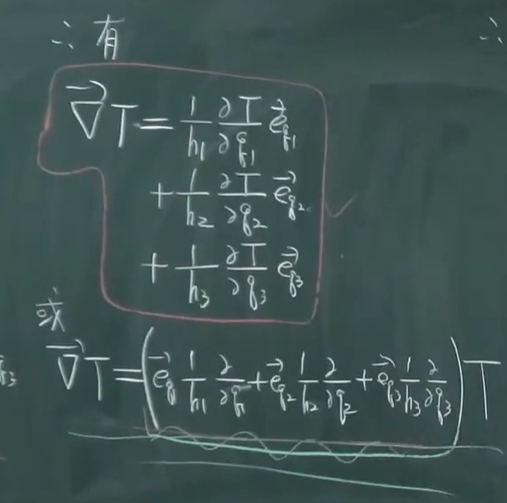 ∴有
∴
∇⃗T = 1/h₁ ∂T/∂q₁ e⃗q₁
+ 1/h₂ ∂T/∂q₂ e⃗q₂
+ 1/h₃ ∂T/∂q₃ e⃗q₃
或
q₃
∇⃗T = (e⃗q₁ 1/h₁ ∂/∂q₁ + e⃗q₂ 1/h₂ ∂/∂q₂ + e⃗q₃ 1/h₃ ∂/∂q₃) T